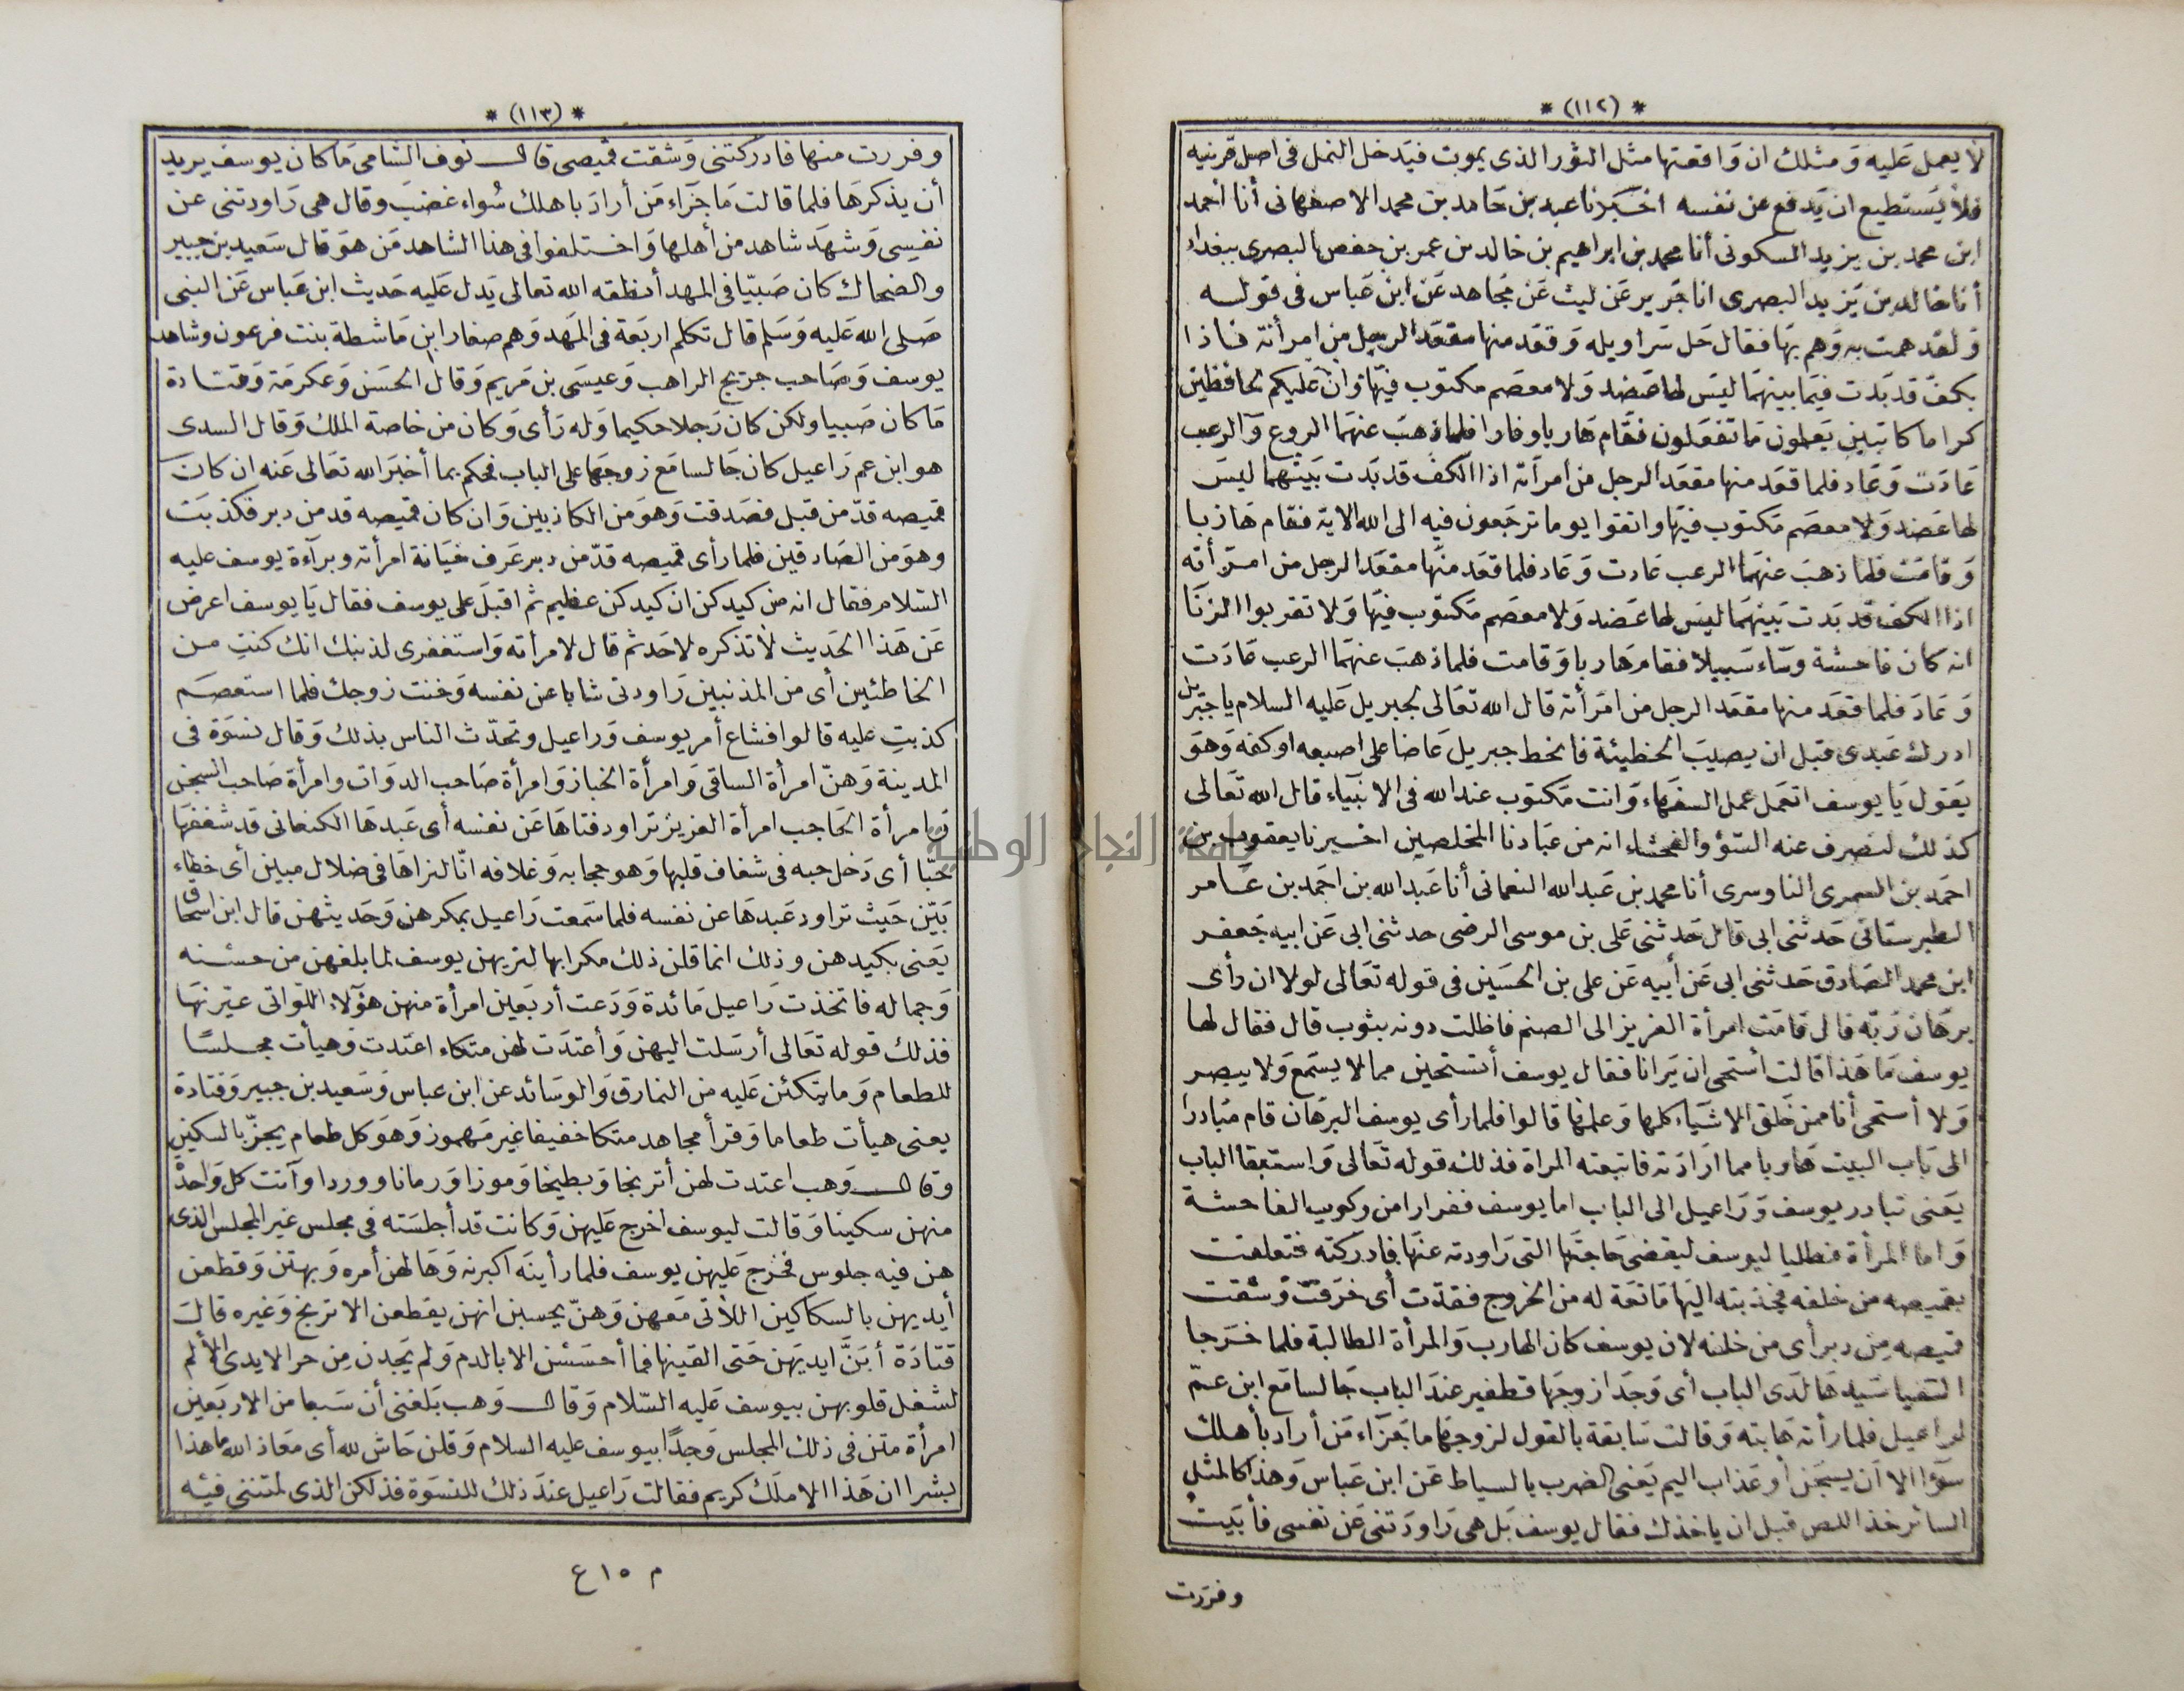 * (١١٢) *
لا يعمل عليه ومثلك ان واقعتها مثل الثور الذى يموت فيدخل النمل فى اصل قرنيه
فلا يستطيع ان يدفع عن نفسه اخبرنا عبد بن حامد بن محمد الاصفهانى أنا احمد
ابن محمد بن يزيد السكونى أنا محمد بن ابراهيم بن خالد بن عمر بن حفص البصرى ببغداد
أنا خالد بن يزيد البصرى انا جرير عن ليث عن مجاهد عن ابن عباس فى قوله
ولقد همت به وهم بها فقال حل سراويله وقعد منها مقعد الرجل من امرأته فاذا
بكف قد بدت فيما بينهما ليس لها عضد ولا معصم مكتوب فيها وان عليكم لحافظين
كراما كاتبين يعلمون ما تفعلون فقام هاربا وفارا فلما ذهب عنهما الروع والرعب
عادت وعاد فلما قعد منها مقعد الرجل من امرأته اذا الكف قد بدت بينهما ليس
لها عضد ولا معصم مكتوب فيها واتقوا يوما ترجعون فيه الى الله الاية فقام هاربا
وقامت فلما ذهب عنهما الرعب عادت وعاد فلما قعد منها مقعد الرجل من امرأته
اذا الكف قد بدت بينهما ليس لها عضد ولا معصم مكتوب فيها ولا تقربوا الزنا
انه كان فاحشة وساء سبيلا فقام هاربا وقامت فلما ذهب عنهما الرعب عادت
وعاد فلما قعد منها مقعد الرجل من امرأته قال الله تعالى لجبريل عليه السلام يا جبريل
ادرك عبدى قبل ان يصيب الخطيئة فانحط جبريل عاضا على اصبعه او كفه وهو
يقول يا يوسف اتعمل عمل السفهاء وانت مكتوب عند الله فى الانبياء قال الله تعالى
كذلك لنصرف عنه السؤ والفحشاء انه من عبادنا المخلصين اخبرنا يعقوب بن
احمد بن السرى أنا محمد بن عبد الله النعمانى أنا عبد الله بن احمد بن عامر
الطبرستانى حدثنى ابى قال حدثنى على بن موسى الرضى حدثنى ابى عن ابيه جعفر
ابن محمد الصادق حدثنى ابى عن أبيه عن على بن الحسين فى قوله تعالى لولا ان رأى
برهان ربه قال قامت امرأة العزيز الى الصنم فاظلت دونه بثوب قال فقال لها
يوسف ما هذا قالت أستحى ان يرانا فقال يوسف أتستحين مما لا يسمع ولا يبصر
ولا أستحى أنا ممن خلق الاشياء كلها وعلمها قالوا فلما رأى يوسف البرهان قام مبادرا
الى باب البيت هاربا مما ارادته فاتبعته المراة فذلك قوله تعالى واستبقا الباب
يعنى تبادر يوسف وراعيل الى الباب اما يوسف ففرارا من ركوب الفاحشة
واما المرأة فطلبا ليوسف ليقضى حاجتها التى راودته عنها فادركته فتعلقت
بقميصه من خلفه فجذبته اليها مانعة له من الخروج فقدت أى خرقت وشقت
قميصه من دبر أى من خلفه لان يوسف كان الهارب والمرأة الطالبة فلما خرجا
التقيا سيدها لدى الباب أى وجدا زوجها قطفير عند الباب جالسا مع ابن عم
لراعيل فلما رأته هابته وقالت سابقة بالقول لزوجها ما جزاء من أراد بأهلك
سؤا الا أن يسجن أو عذاب اليم يعنى الضرب بالسياط عن ابن عباس وهذا كالمثل
السائر خذ اللص قبل ان ياخذك فقال يوسف بل هى راودتنى عن نفسى فأبيت
وفررت
* (١١٣) *
وفررت منها فادركتنى وشقت قميصى قال نوف الشامى ما كان يوسف يريد
أن يذكرها فلما قالت ما جزاء من أراد باهلك سواء غضب وقال هى راودتنى عن
نفسى وشهد شاهد من أهلها واختلفوا فى هذا الشاهد من هو قال سعيد بن جبير
والضحاك كان صبيا فى المهد أنطقه الله تعالى يدل عليه حديث ابن عباس عن النبى
صلى الله عليه وسلم قال تكلم اربعة فى المهد وهم صغار ابن ماشطة بنت فرعون وشاهد
يوسف وصاحب جريج الراهب وعيسى بن مريم وقال الحسن وعكرمة وقتادة
ما كان صبيا ولكن كان رجلا حكيما وله رأى وكان من خاصة الملك وقال السدى
هو ابن عم راعيل كان جالسا مع زوجها على الباب فحكم بما أخبر الله تعالى عنه ان كان
قميصه قد من قبل فصدقت وهو من الكاذبين وان كان قميصه قد من دبر فكذبت
وهو من الصادقين فلما رأى قميصه قد من دبر عرف خيانة امرأته وبراءة يوسف عليه
السلام فقال انه من كيدكن ان كيدكن عظيم ثم اقبل على يوسف فقال يا يوسف اعرض
عن هذا الحديث لا تذكره لاحد ثم قال لامرأته واستغفرى لذنبك انك كنت من
الخاطئين أى من المذنبين راودتى شابا عن نفسه وخنت زوجك فلما استعصم
كذبت عليه قالوا فشاع أمر يوسف وراعيل وتحدث الناس بذلك وقال نسوة فى
المدينة وهن امرأة الساقى وامرأة الخباز وامرأة صاحب الدواب وامرأة صاحب السجن
وامرأة الحاجب امرأة العزيز تراود فتاها عن نفسه أى عبدها الكنعانى قد شغفها
حبا أى دخل حبه فى شغاف قلبها وهو حجابه وغلافه انا لنراها فى ضلال مبين أى خطاء
بين حيث تراود عبدها عن نفسه فلما سمعت راعيل بمكرهن وحديثهن قال ابن اسحاق
يعنى بكيدهن وذلك انما قلن ذلك مكرا بها لتريهن يوسف لما بلغهن من حسنه
وجماله فاتخذت راعيل مائدة ودعت أربعين امرأة منهن هؤلاء اللواتى عيرنها
فذلك قوله تعالى أرسلت اليهن وأعتدت لهن متكاء اعتدت وهيأت مجلسا
للطعام وما يتكئن عليه من النمارق والوسائد عن ابن عباس وسعيد بن جبير وقتادة
يعنى هيأت طعاما وقرأ مجاهد متكا خفيفا غير مهموز وهو كل طعام يجز بالسكين
وقال وهب اعتدت لهن أترنجا وبطيخا وموزا ورمانا ووردا وآتت كل واحدة
منهن سكينا وقالت ليوسف اخرج عليهن وكانت قد أجلسته فى مجلس غير المجلس الذى
هن فيه جلوس فخرج عليهن يوسف فلما رأينه اكبرنه وهالهن أمره وبهتن وقطعن
أيديهن بالسكاكين اللاتى معهن وهن يحسبن انهن يقطعن الاترنج وغيره قال
قتادة أبن ايديهن حتى القينها فما أحسسن الا بالدم ولم يجدن من حز الايدى الالم
لشغل قلوبهن بيوسف عليه السلام وقال وهب بلغنى أن سبعا من الاربعين
امرأة متن فى ذلك المجلس وجدا بيوسف عليه السلام وقلن حاش لله أى معاذ الله ما هذا
بشرا ان هذا الا ملك كريم فقالت راعيل عند ذلك للنسوة فذلكن الذى لمتننى فيه
م ١٥ ع
جامعة النجاح الوطنية